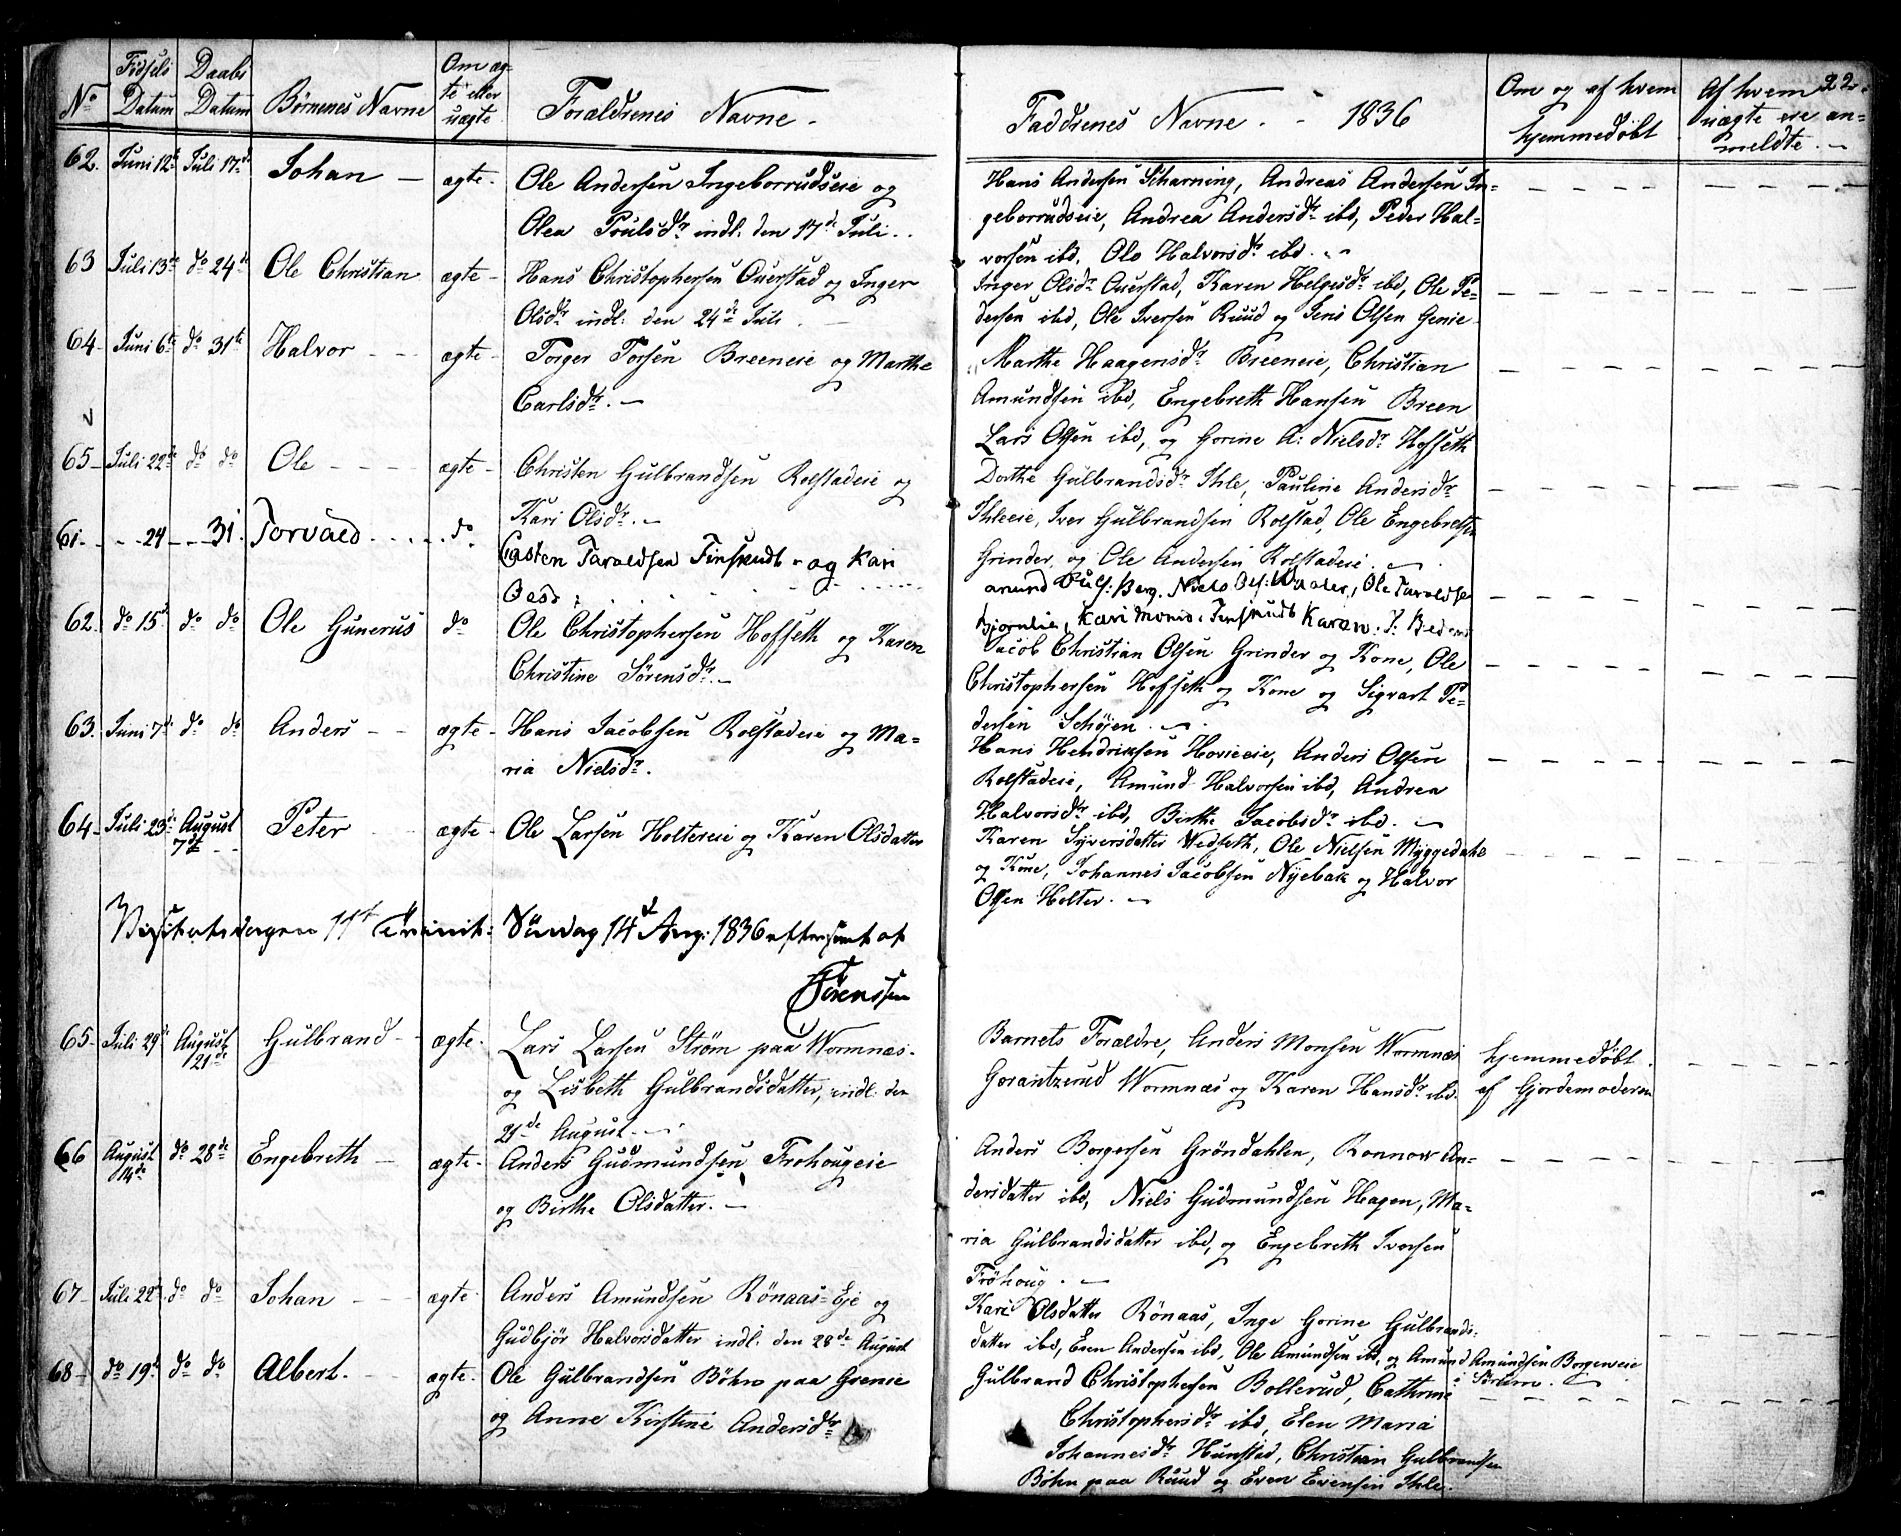 No
Fødsels Datum
Daabs Datum
Børnenes Navne
Om ægte eller uægte
Forældrenes Navne.
Faddrenes Navne. - 1836
Om og af hvem hjemmedøbt
Af hvem uægte ere anmeldte.
22.
62. Juni 12te Juli 17de Johan — ægte. Ole Andersen Ingeborrudseie og
Olea Poulsdr indl: den 17de Juli.
Hans Andersen Scharning, Andreas Andersen In=
geborrudseie, Andrea Andersdr ibd, Peder Hal=
vorsen ibd, Ole Halvorsdr ibd.
63 Juli 13de do 24de Ole Christian ægte - Hans Christophersen Overstad og Inger
Olsdr indl: den 24de Juli.
Inger Olsdr Overstad, Karen Helgesdr ibd, Ole Pe=
dersen ibd, Ole Iversen Ruud og Jens Olsen Genie
64 - Juni 6te do 31te Halvor - - ægte - Torger Torsen Breeneie og Marthe
Carlsdr. —
Marthe Haagensdr Breeneie, Christian
Amundsen ibd, Engebreth Hansen Breen
Lars Olsen ibd, og Gorine A: Nielsdr Hofseth
65 - Juli 22de do do Ole - - - ægte - Christen Gulbrandsen Rolstadeie og
Kari Olsdr. —
Dorthe Gulbrandsdr Ihle, Pauline Andersdr
Ihleeie, Iver Gulbrandsen Rolstad, Ole Engebretsen
Grinder, og Ole Andersen Rolstadeie.
61. - - 24 - - 31. Torvald . . . . do. Casten Taraldsen Finskudt - og Kari
Amund Berg, Niels Ol: Ole Taraldse
Kari Mons: Finskudt Karen
62. do 15de do do Ole Gunerus do Ole Christophersen Hofseth og Karen
Christine Sørensdr. -
Jacob Christian Olsen Grinder og Kone, Ole
Christophersen Hofseth og Kone og Sigvart Pe=
dersen Schøjen.
63. Juni 7de do do Anders - - ægte - Hans Jacobsen Rolstadeie og Ma=
ria Nielsdr.
Hans Hendriksen Hovieeie, Anders Olsen
Rolstadeie, Amund Halvorsen ibd, Andrea
Halvorsdr ibd, Birthe Jacobsdr ibd. —
64 - Juli 23de August 7de Peter ægte - Ole Larsen Holtereie og Karen Olsdatter
Karen Syversdatter Vedseth, Ole Nielsen Myggedahl
og Kone, Johannes Jacobsen Nyebak og Halvor
Olsen Holter. —
Visitatsdagen 11te Trinit: Söndag 14d Aug: 1836 efterseet af
Sørenssen
65 - Juli 29de August 21de Gulbrand - ægte. Lars Larsen Strøm paa Wormnæs.
og Lisbeth Gulbrandsdatter, indl: den
21de August. -
Barnets Forældre, Anders Monsen Wormnæs
Wormnæs og Karen Hansdr ibd.
hjemmedøbt
af Gjordemoderen
66 August 14de do 28de Engebreth — ægte - Anders Gudmundsen Frohougeie
og Birthe Olsdatter. —
Anders Borgersen Gröndahlen, Ronnow An=
dersdatter ibd, Niels Gudmundsen Hagen, Ma=
ria Gulbrandsdatter ibd, og Engebreth Iversen
Fröhoug. —
67 - Juli 22de do do Johan - - - ægte. Anders Amundsen Rönaas=Eje og
Gudbjör Halvorsdatter indl: den 28de August
Kari Olsdatter Rönaas, Inge Gorine Gulbrands=
datter ibd, Even Andersen ibd, Ole Amundsen ibd, og Amund Amundsen Borgeneie
i Strøm.
68 - do 19de do do Albert. - - ægte. Ole Gulbrandsen Böhn paa Grenie
og Anne Kirstine Andersdr
Gulbrand Christophersen Bollerud, Cathrine
Christophersdr ibd, Elen Maria
Johannesdr Hunstad, Christian Gulbrandsen
Böhn paa Ruud og Even Evensen Ihle.